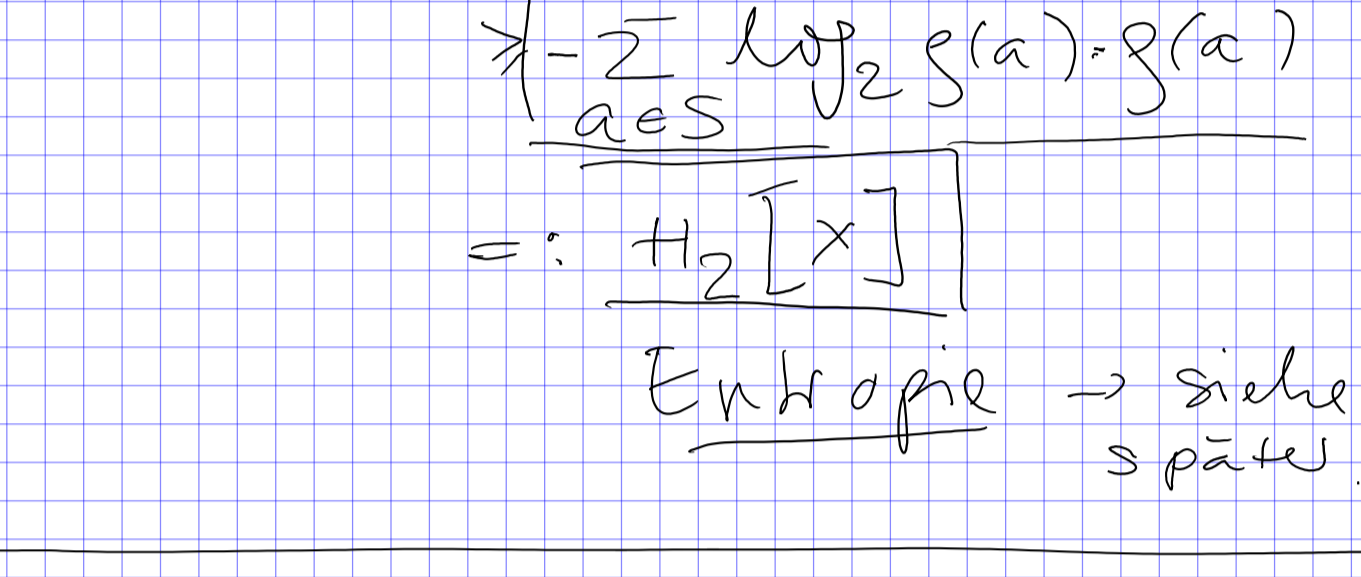 ≥ - Σ log₂ ρ(a) · ρ(a)
a ∈ S
=: H₂[X]
Entropie → siehe
später.